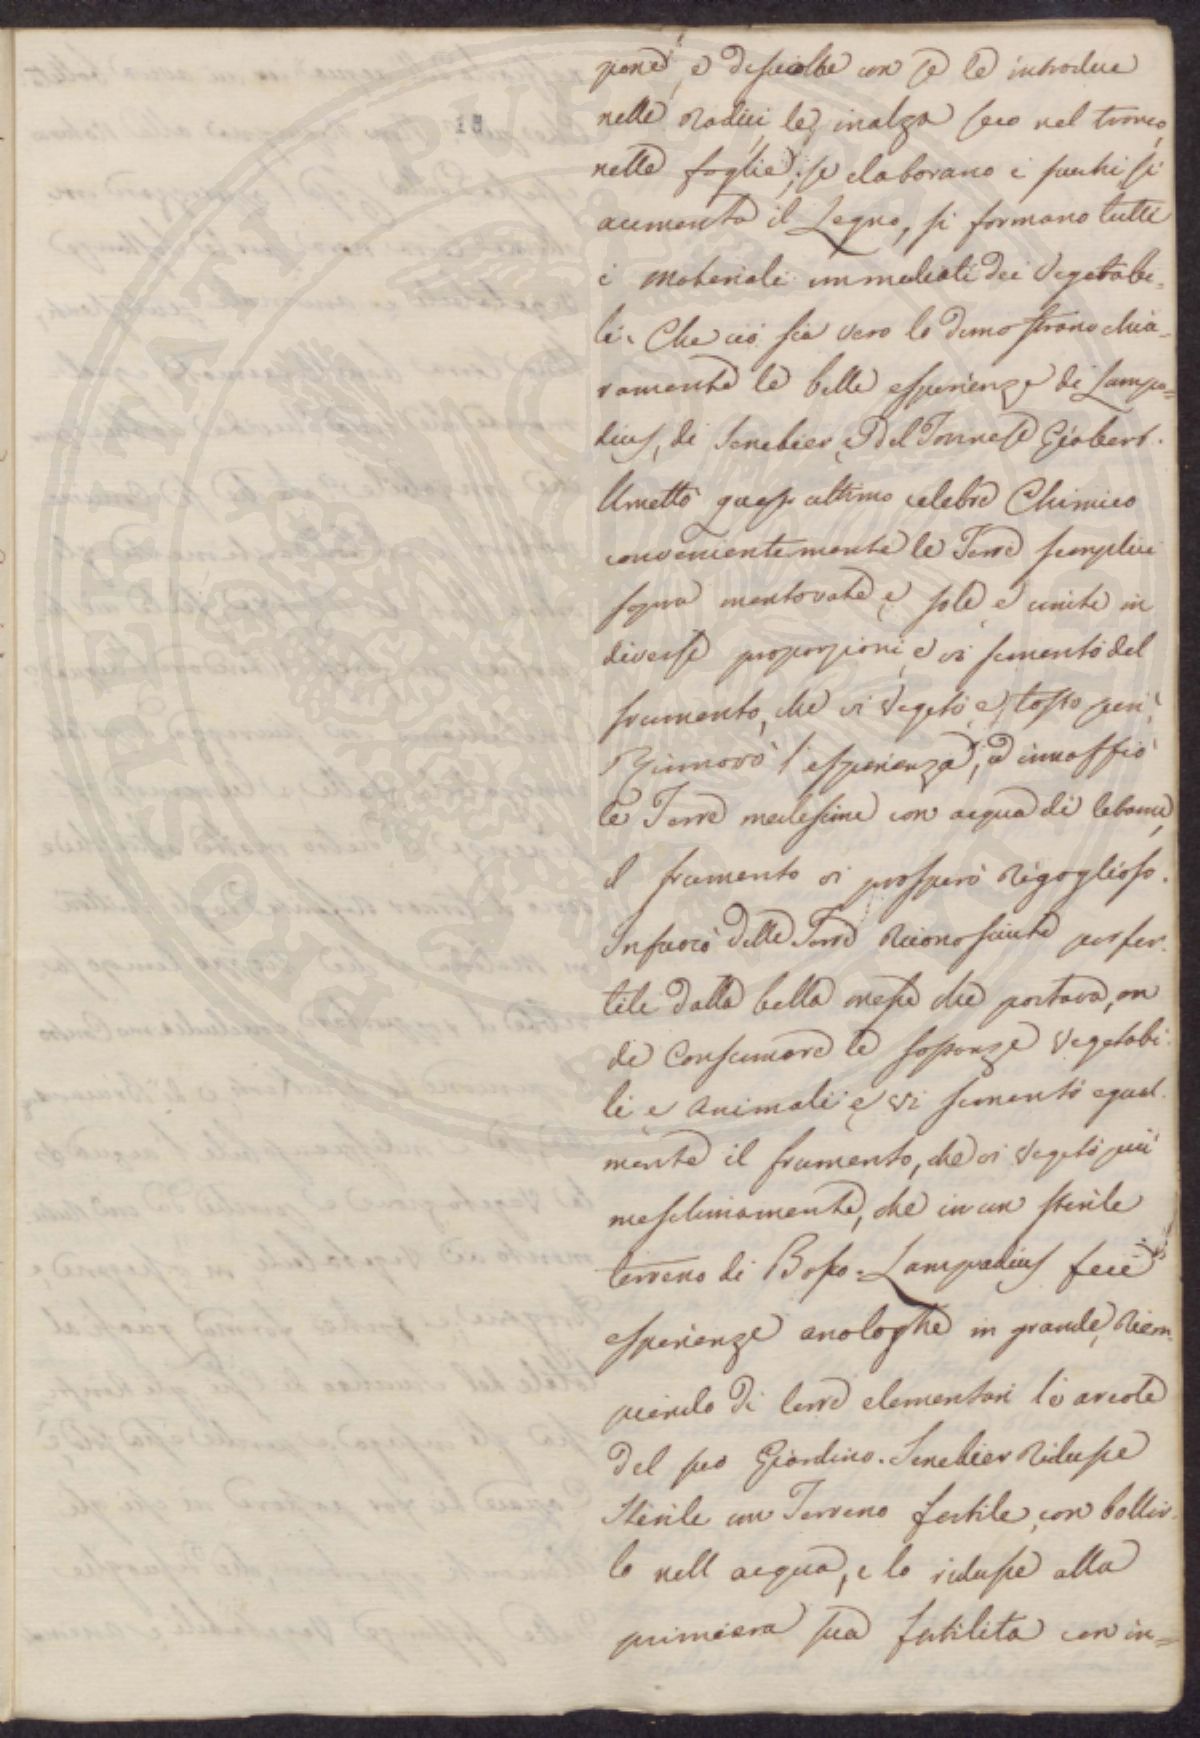 pone, e disciolte con se le introduce
nelle Radici, le inalza seco nel tronco,
nelle foglie; si elaborano i succhi si
aumenta il Legno, si formano tutti
i materiali immediati dei Vegetabi=
li. Che ciò sia vero lo dimostrano chia=
ramente le belle esperienze di Lampa=
dius, di Senebier, e del Torinese Giobert.
Umettò quest ultimo celebre Chimico
convenientemente le Terre semplici
sopra mentovate e sole, e unite in
diverse proporzioni, e vi sementò del
frumento, che vi vegetò e tosto perì,
Rinnovò l'esperienza, ed innaffiò
le Terre medesime con acqua di letame,
il frumento vi prosperò Rigoglioso.
Infuocò delle Terre Riconosciute per fer=
tili dalla bella messe che portava, on
de Consumare le sostanze Vegetabi=
li e Animali e vi sementò egual=
mente il frumento, che vi vegetò più
meschinamente, che in un sterile
terreno di Bosco. Lampadius fece
esperienze analoghe in grande, Riem=
piendo di terre elementari le areole
del suo Giardino. Senebier Ridusse
Sterile un Terreno fertile, con bollir=
lo nell acqua, e lo ridusse alla
primiera sua fertilita con in=
18